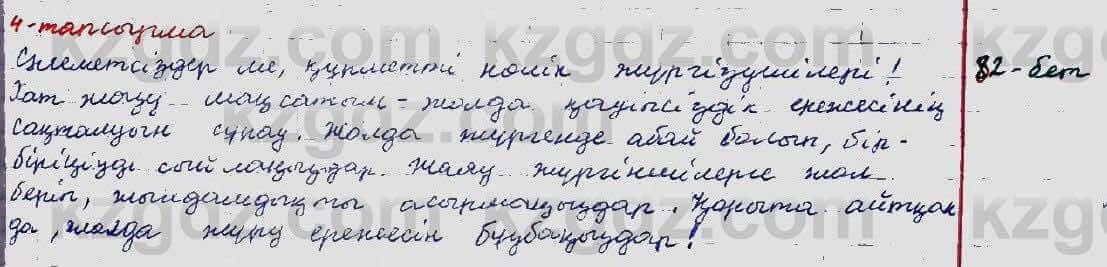 4-тапсырма
Сәлеметсіздер ме, құрметті көлік жүргізушілері! 82-бет
Хат жазу мақсатым - жолда қауіпсіздік ережесінің
сақталуын сұрау. Жолда жүргенде абай болып, бір-
біріңізді сыйлаңыздар. Жаяу жүргіншілерге жол
беріп, жылдамдықты асырмаңыздар. Қорыта айтқан
да, жолда жүру ережесін бұзбаңыздар!
kzgdz.com